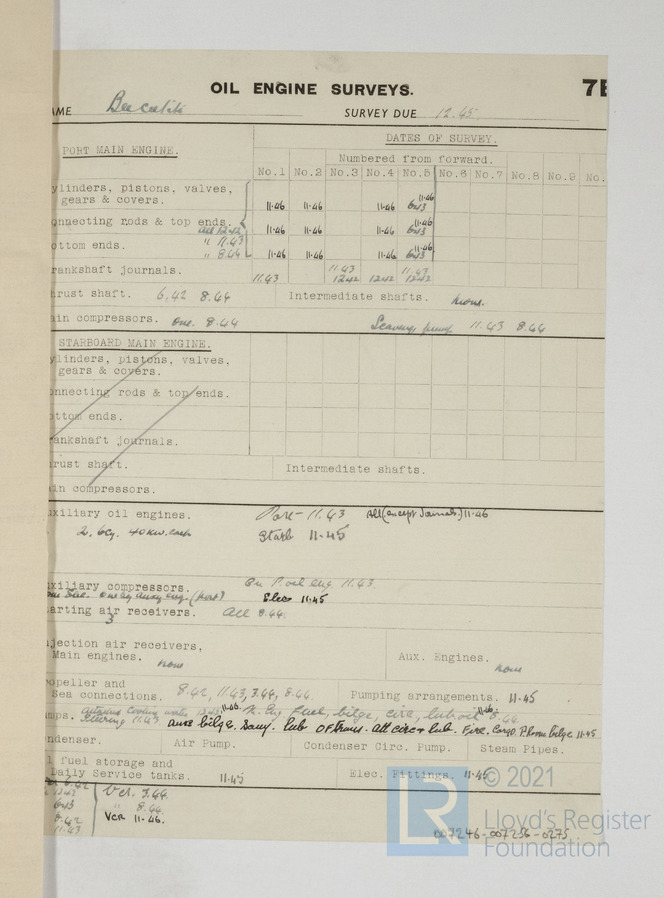 OIL ENGINE SURVEYS. 7E
AME SURVEY DUE 12.45.
DATES OF SURVEY.
PORT MAIN ENGINE. Numbered from forward.
No.1 No.2 No.3 No.4 No.5 No.6 No.7 No.8 No.9 No.
ylinders, pistons, valves, 11.46
gears & covers. 11.46 11.46 11.46 6.43
onnecting rods & top ends. 11.46
11.46 11.46 11.46 6.43
" 11.43
ottom ends. 11.46
" 8.44 11.46 11.46 11.46 6.43
rankshaft journals. 11.43 11.43
11.43 12.42 12.42 12.42
hrust shaft. 6.42 8.44 Intermediate shafts. none.
ain compressors. one. 8.44 Scavenge pump 11.43 8.44
STARBOARD MAIN ENGINE.
ylinders, pistons, valves,
gears & covers.
onnecting rods & top ends.
ottom ends.
ankshaft journals.
rust shaft. Intermediate shafts.
in compressors.
xiliary oil engines. Port - 11.43 All (except Journals) 11.46
2, 6cy. 40 KW. each Starb 11.45
xiliary compressors. On P. oil eng. 11.43.
one by auxy. eng. (port) Elec 11.45
arting air receivers. All 8.44.
3
jection air receivers,
Main engines. none Aux. Engines. none
opeller and
Sea connections. 8.42, 11.43, 3.44, 8.44. Pumping arrangements. 11.45
mps. cooling water 11.46 fuel, bilge, circ, lub oil 11.46 8.44
Steering 11.43 aux bilge. Sany. lub OF trans. att circ & lub. Fire. Cargo. P.room bilge 11.45
ndenser. Air Pump. Condenser Circ. Pump. Steam Pipes.
l fuel storage and
Daily Service tanks. 11.45 Elec. Fittings. 11.45
6.42 Ver. 3.44.
12.42
6.43 " 8.44.
8.42 Ver 11.46.
11.43
© 2021
LR
Lloyd's Register
Foundation
007246-007256-0275